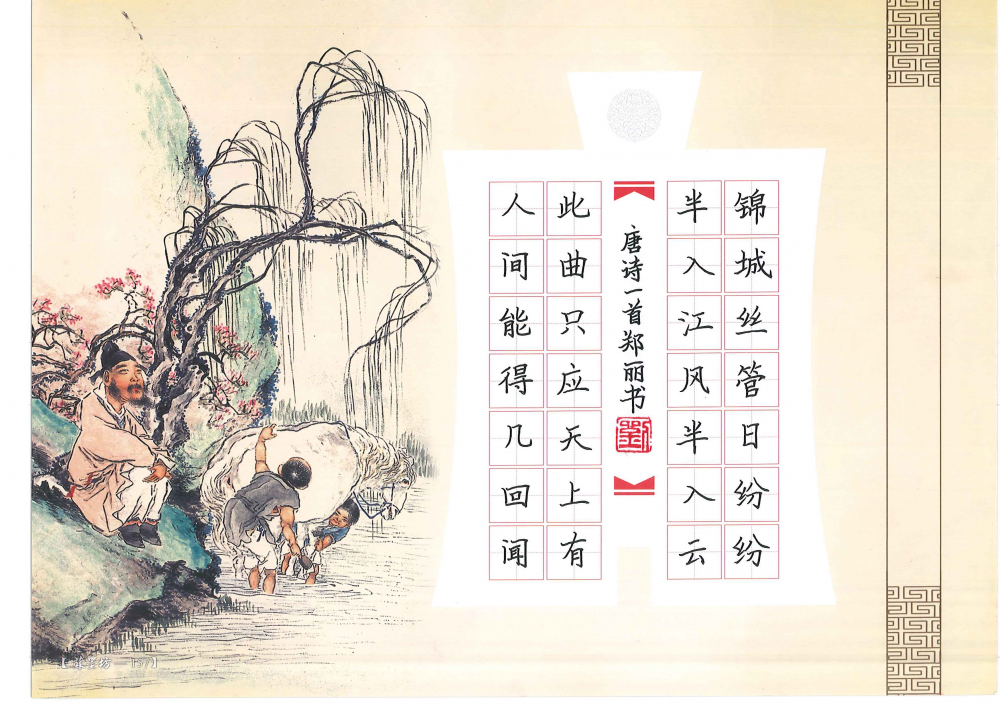 锦城丝管日纷纷
半入江风半入云
唐诗一首郑丽书
此曲只应天上有
人间能得几回闻